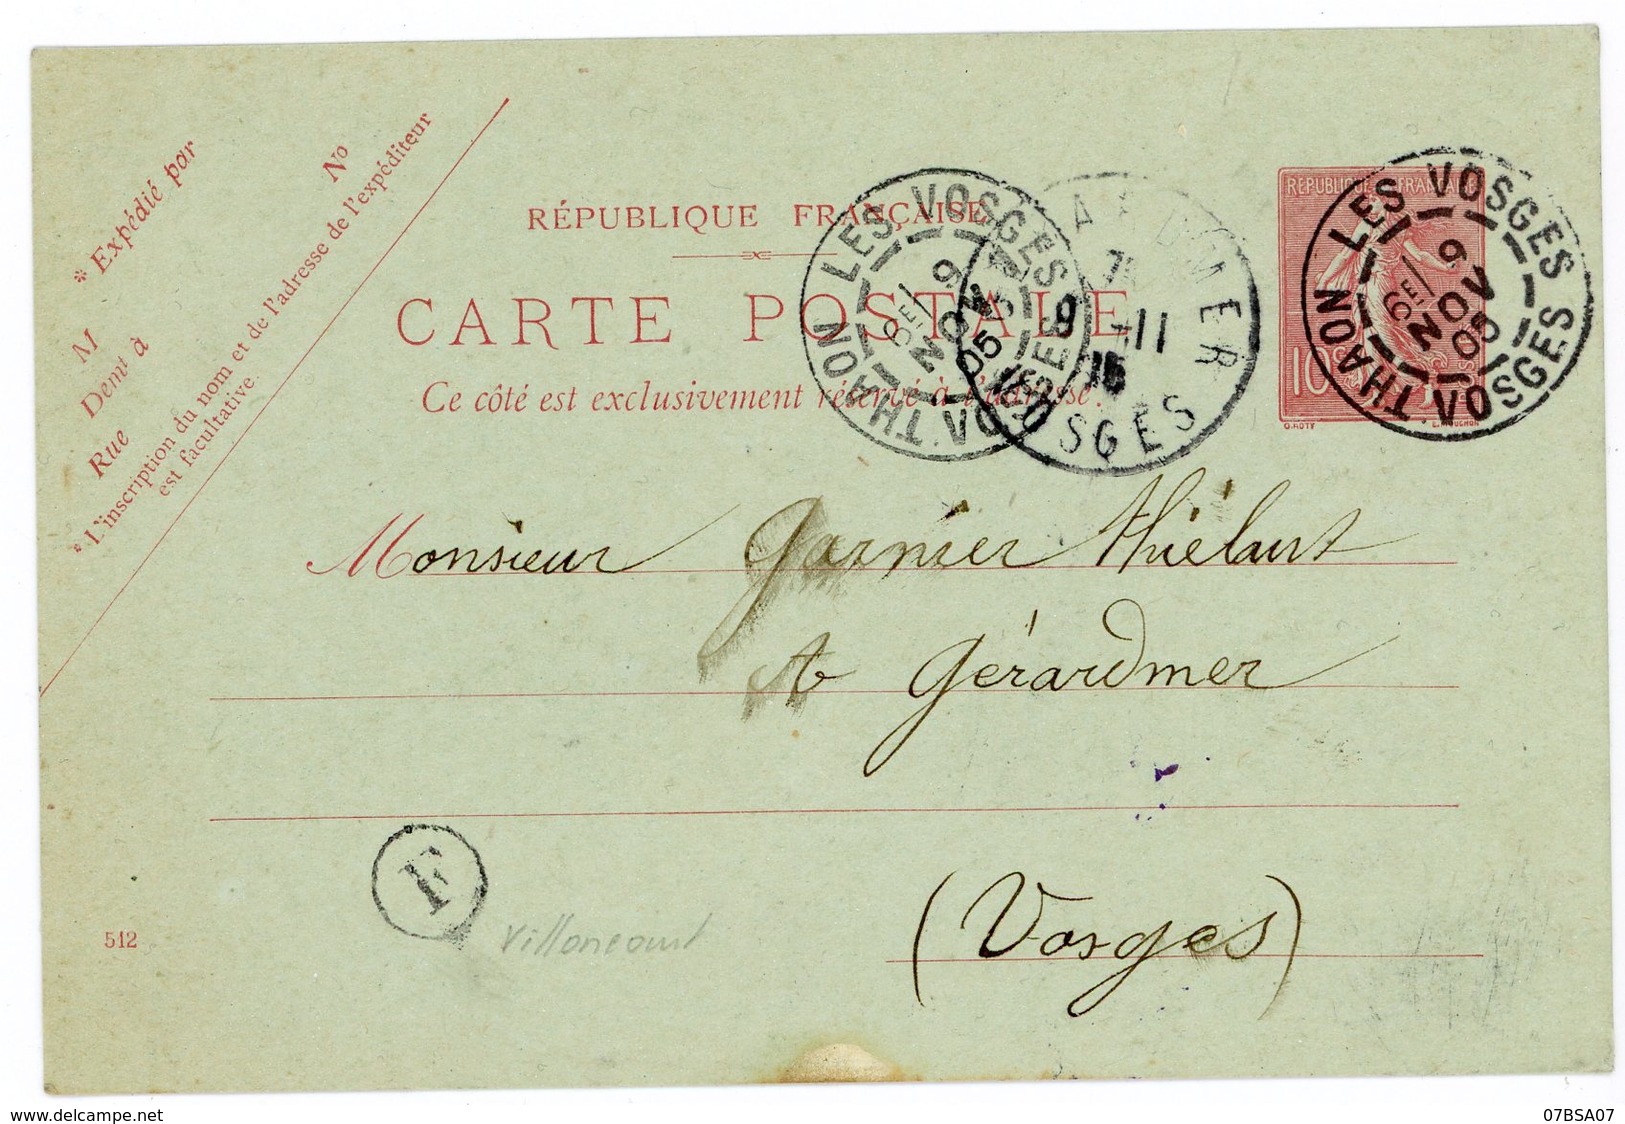 * Expédié par
M
Demt à
Rue
No
* L'inscription du nom et de l'adresse de l'expéditeur
est facultative.
RÉPUBLIQUE FRANÇAISE
CARTE POSTALE
Ce côté est exclusivement réservé à l'adresse.
THAON LES VOSGES VOSGES
6E/ 9
NOV
05
9 -11
VOSGES
RÉPUBLIQUE FRANÇAISE
10c
O. ROTY
L. MOUCHON
THAON LES VOSGES VOSGES
6E/ 9
NOV
05
Monsieur Garnier Thiélant
A Gérardmer
(Vosges)
F
Villoncourt
512
delcampe.net
07BSA07